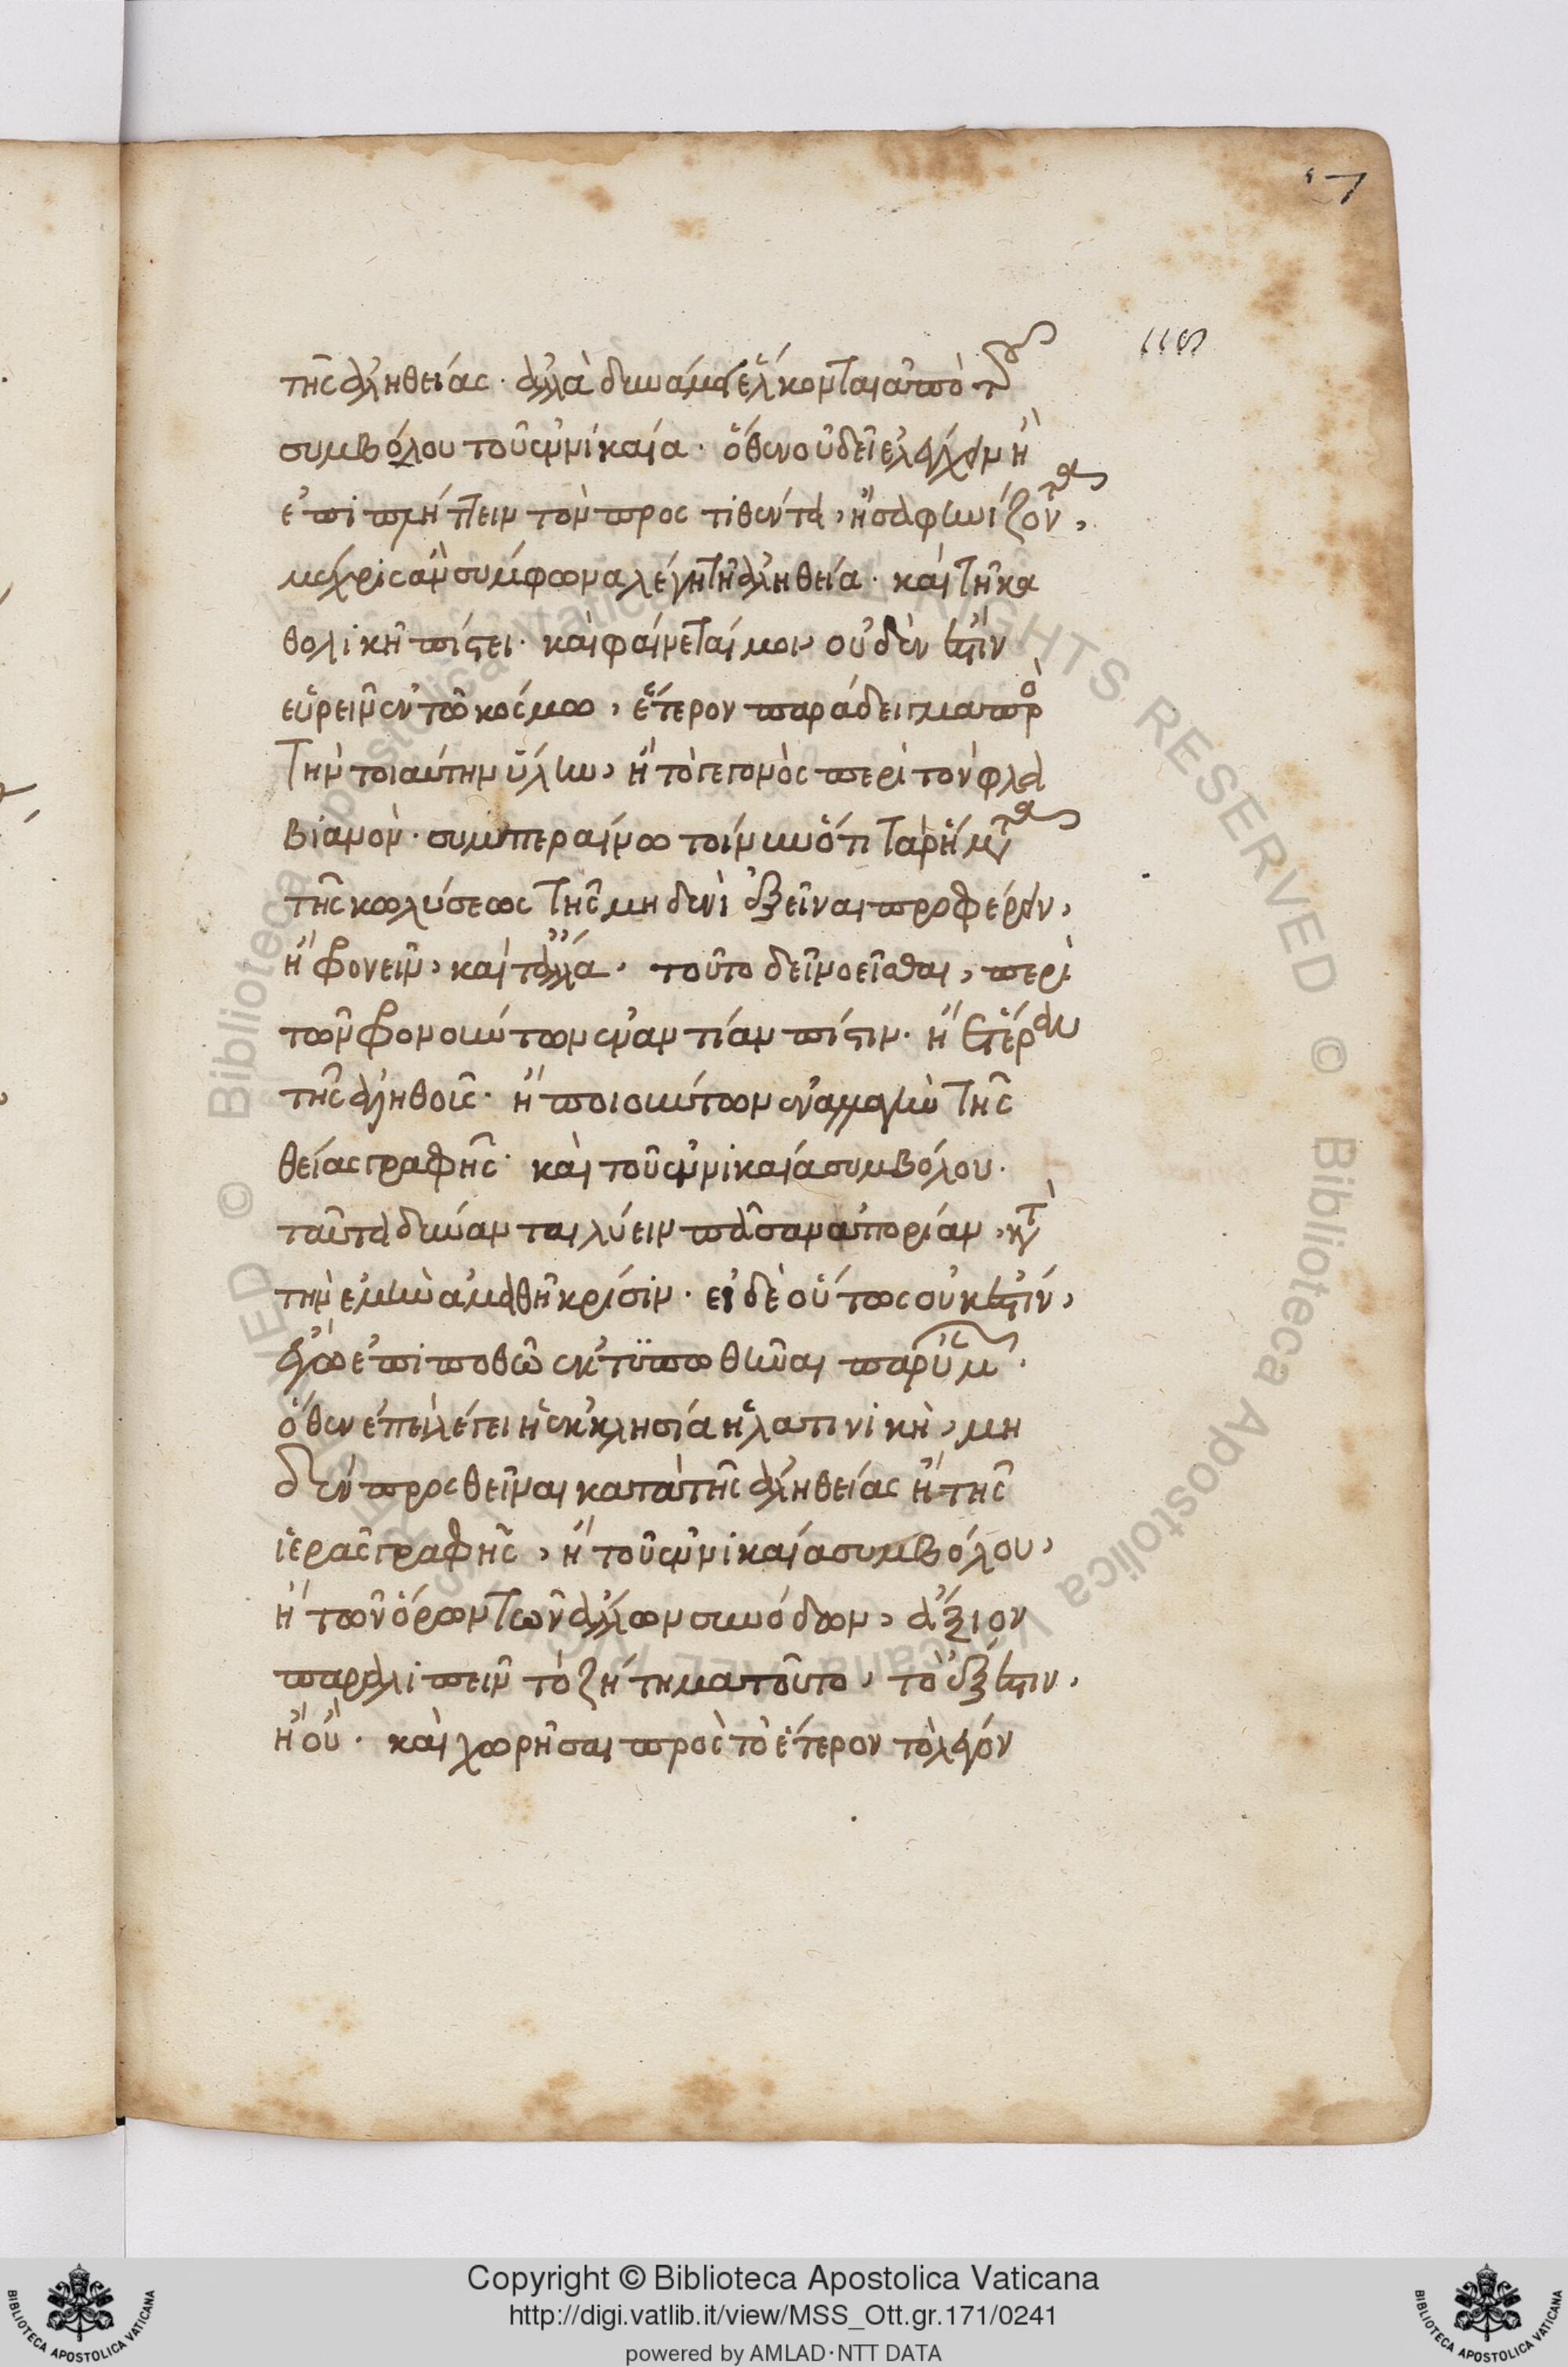 116
τῆς ἀληθείας· ἀλλὰ δυνάμει ἕλκονται ἀπὸ τοῦ
συμβόλου τοῦ ἐν νικαία· ὅθεν οὐδεὶ ἐλέγχειν ἢ
ἐπιπλήττειν τὸν προστιθέντα, ἢ σαφηνίζοντα,
μέχρις ἂν σύμφωνα λέγη τῆ ἀληθεία· καὶ τῆ κα
θολικῆ πίστει· καὶ φαίνεταί μοι, οὐδὲν ἔστιν
εὑρεῖν ἐν τῶ κόσμω, ἕτερον παράδειγμα πρὸ
τὴν τοιαύτην ὕλην, ἢ τὸ γεγονὸς περὶ τὸν φλα
βιανὸν· συμπεραίνω τοίνυν ὅτι τὰ ῥήματα
τῆς κωλύσεως τῆς μηδενὶ ἐξεῖναι προφέρειν,
ἢ φρονεῖν, καὶ τἄλλα· τοῦτο δεῖ νοεῖσθαι, περὶ
τῶν φρονούντων ἐναντίαν πίστιν· ἢ ἑτέραν
τῆς ἀληθοῦς· ἢ ποιούντων ἐναλλαγὴν τῆς
θείας γραφῆς· καὶ τοῦ ἐν νικαία συμβόλου·
ταῦτα δύνανται λύειν πᾶσαν ἀπορίαν, κατὰ
τὴν ἐμὴν ἀμαθῆ κρίσιν· εἰ δὲ οὕτως οὐκ ἔστιν,
ἐγὼ ἐπιποθῶ ἐκτϋπωθῆναι παρ' ὑμῶν·
ὅθεν ἐπεὶ λέγει ἡ ἐκκλησία ἡ λατινικὴ, μη
δὲν προσθεῖναι κατὰ τῆς ἀληθείας ἢ τῆς
ἱερᾶς γραφῆς, ἢ τοῦ ἐν νικαία συμβόλου,
ἢ τῶν ὅρων τῶν ἄλλων συνόδων, ἄξιον
παραλιπεῖν τὸ ζήτημα τοῦτο, τὸ ἔξεστιν,
ἢ οὔ· καὶ χωρῆσαι πρὸς τὸ ἕτερον τὸ λέγον
Copyright © Biblioteca Apostolica Vaticana
http://digi.vatlib.it/view/MSS_Ott.gr.171/0241
powered by AMLAD·NTT DATA